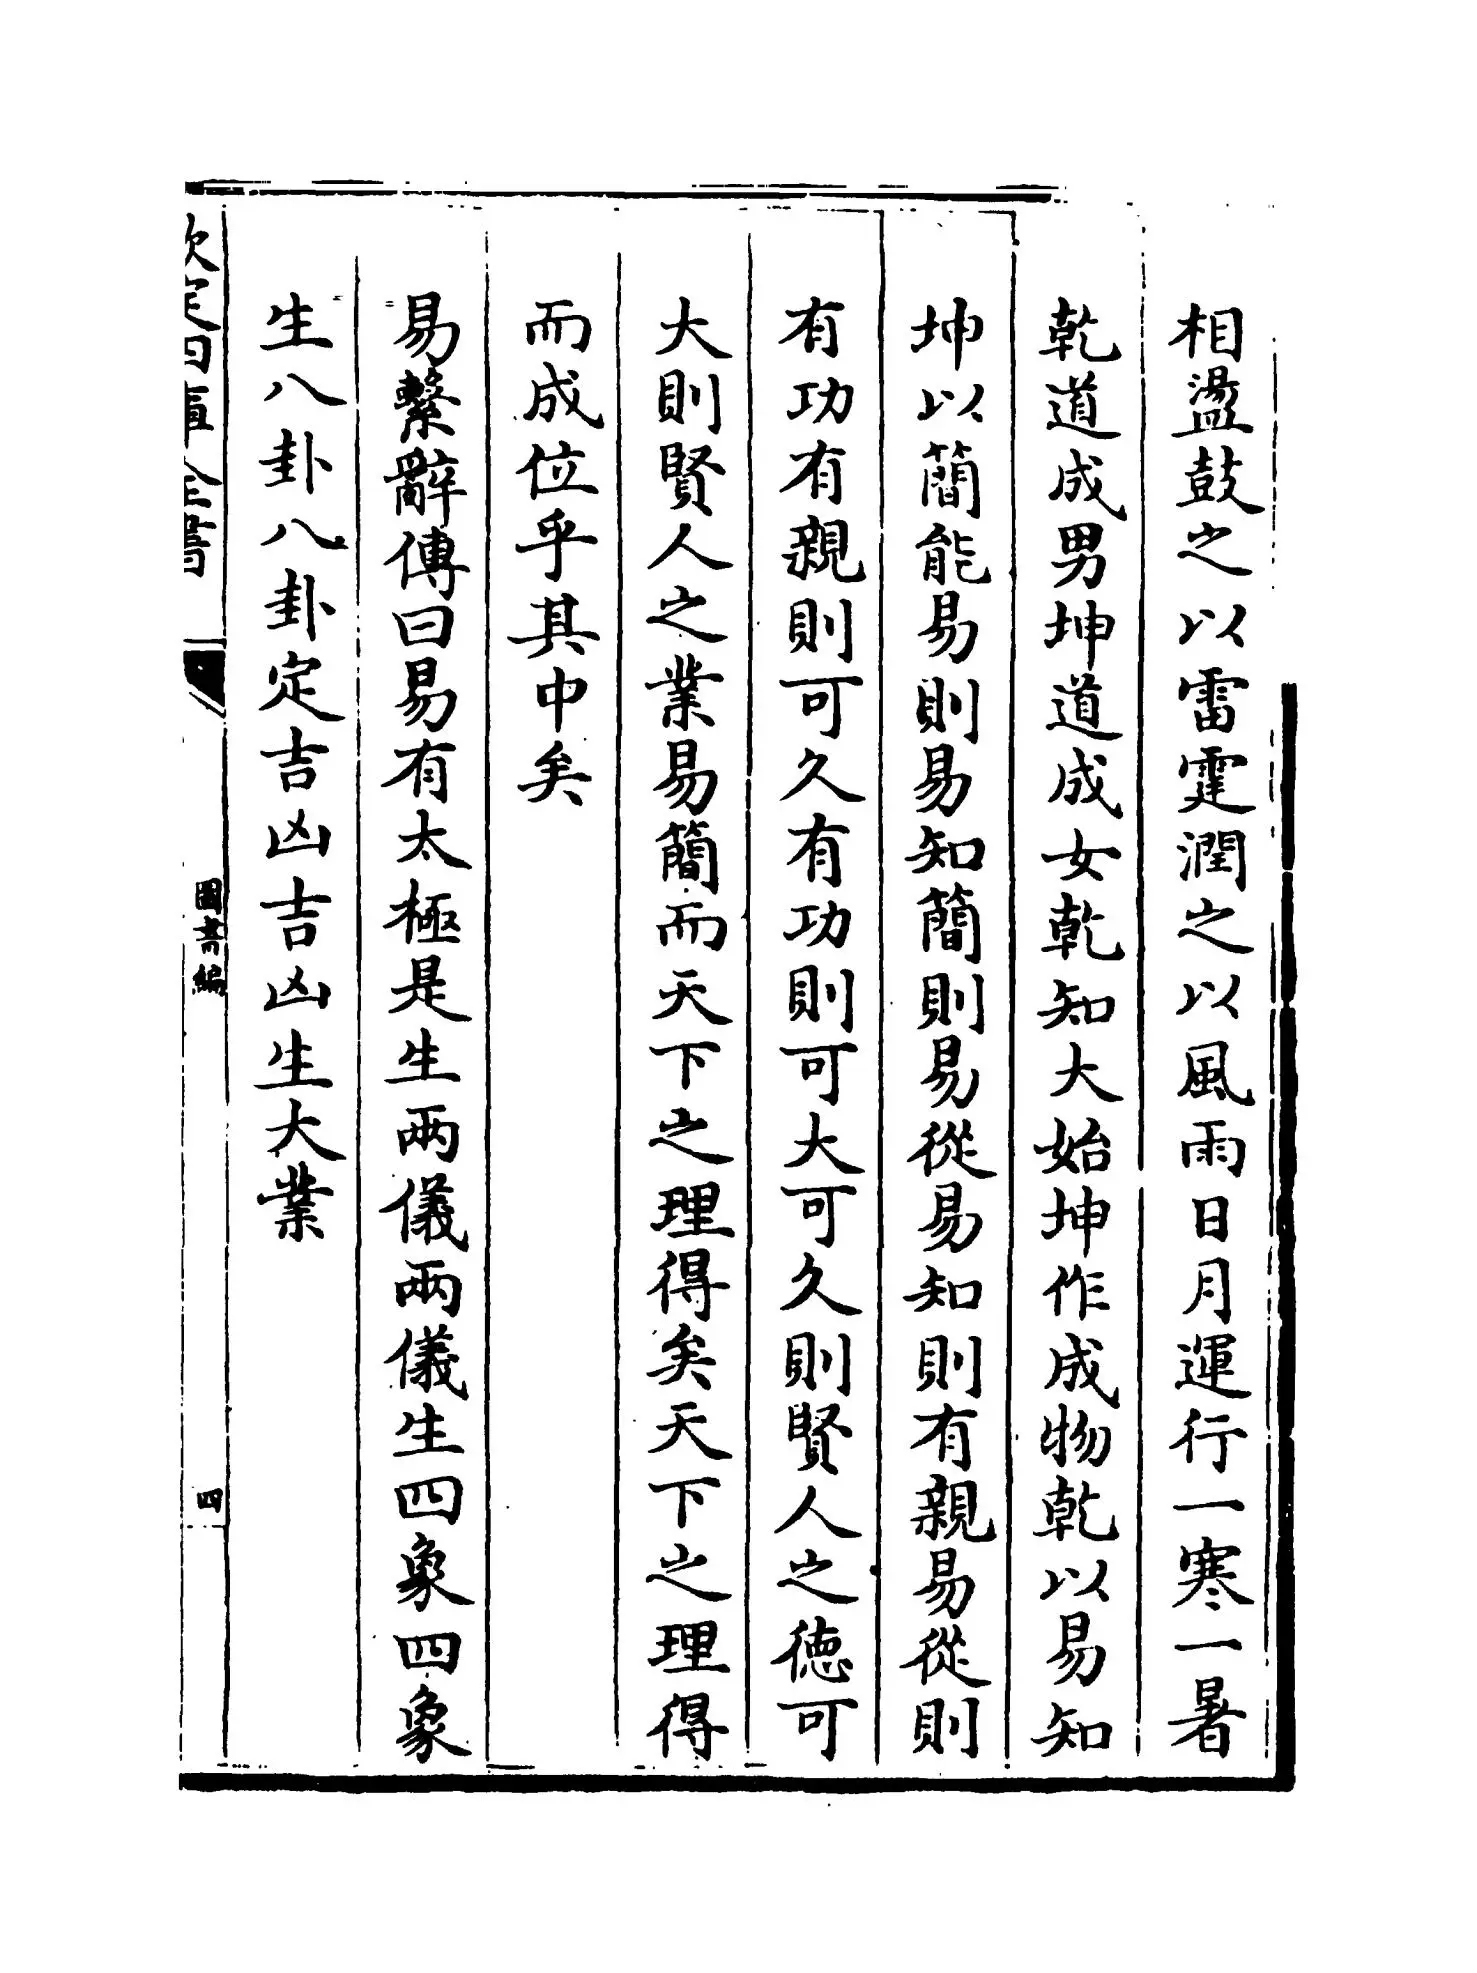 相盪鼓之以雷霆潤之以風雨日月運行一寒一暑
乾道成男坤道成女乾知大始坤作成物乾以易知
坤以簡能易則易知簡則易從易知則有親易從則
有功有親則可久有功則可大可久則賢人之德可
大則賢人之業易簡而天下之理得矣天下之理得
而成位乎其中矣
易繫辭傳曰易有太極是生兩儀兩儀生四象四象
生八卦八卦定吉凶吉凶生大業
欽定四庫全書
圖書編
四